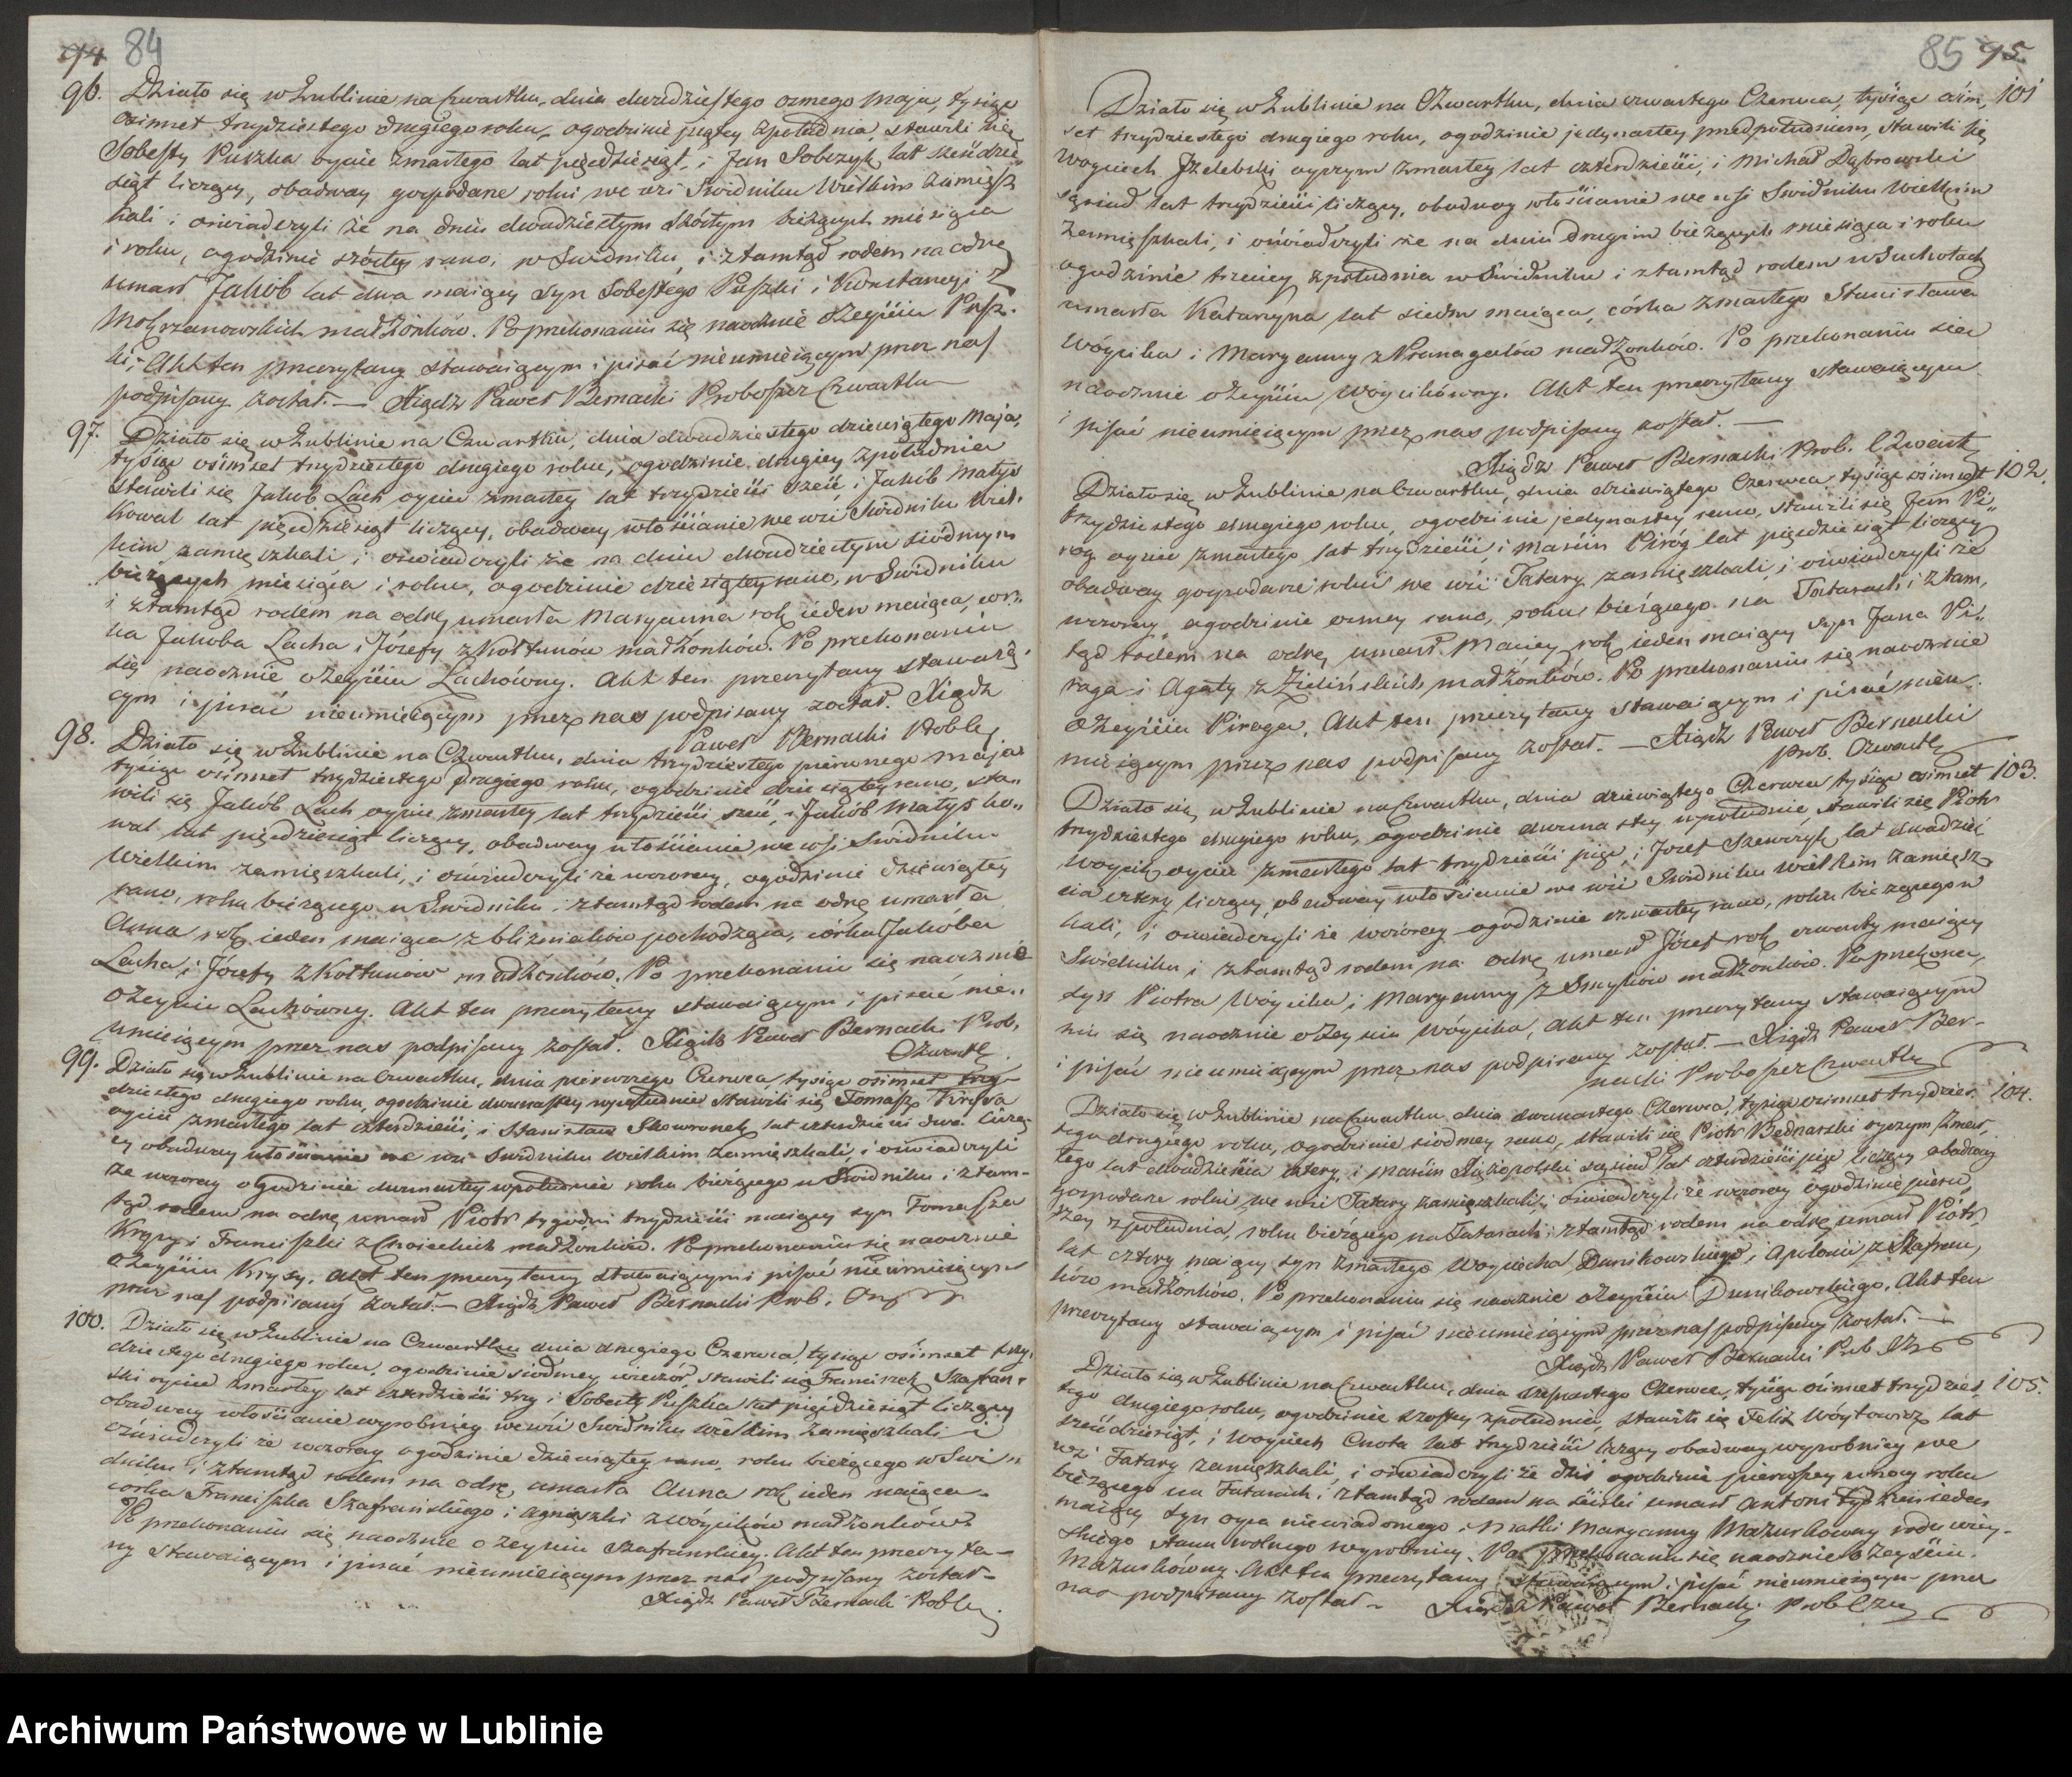 94 84
96. Działo się w Lublinie na Czwartku, dnia dwudziestego osmego Maja, tysiąc
osimset trzydziestego drugiego roku, ogodzinie piątey zpołudnia, stawili się
Sobesty Puszka oycie zmarłego lat pięćdziesiąt, i Jan Sobczyk lat sześdzie„
siąt liczący, obadway gospodarze rolni we wsi Swidniku Wielkim zamiesz
kali i oświadczyli że na dniu dwudziestym szóstym bieżących miesiąca
i roku, ogodzinie szóstey rano, w Swidniku, i ztamtąd rodem na odrę
umarł Jakób lat dwa maiący syn Sobestego Puszki i Konstancyi z
Mokrzanowskich małżonków. Po przekonaniu się naocznie o Zeyściu Pusz.
ki, Akt ten przeczytany stawaiącym i pisać nieumieiącym przez nas
podpisany został. — Xiądz Paweł Bernacki Proboszcz Czwartku
97. Działo się w Lublinie na Czwartku, dnia dwudziestego dziewiątego Maja,
tysiąc osimset trzydziestego drugiego roku, ogodzinie drugiey zpołudnia
stawili się Jakób Lach oyciec zmarłey lat trzydzieści sześć, i Jakób Matys
kowal lat pięćdziesiąt liczący, obadway włościanie we wsi Swidniku Wiel.
kim zamięszkali i oświadczyli że na dniu dwudziestym siódmym
bieżących miesiąca i roku, ogodzinie dziesiątey rano, w Swidniku
i ztamtąd rodem na odrę umarła Maryanna rok ieden maiąca, cór„
ka Jakoba Lacha i Józefy z Kołtunów małżonków. Po przekonaniu
się naocznie o Zeyściu Lachówny. Akt ten przeczytany stawaią
cym i pisać nieumieiącym przez nas podpisany został. Xiądz
Paweł Bernacki Prob
98. Działo się w Lublinie na Czwartku, dnia trzydziestego pierwszego maja
tysiąc osimset trzydziestego drugiego roku, ogodzinie dziesiątey rano, sta„
wili się Jakób Lach oyciec zmarłey lat trzydzieści sześć, i Jakób Matys ko„
wal lat pięćdziesiąt liczący, obadway włościanie, we wsi Swidniku
Wielkim zamięszkali, i oświadczyli że wczoray, ogodzinie dziewiątey
rano, roku bieżącego w Swidniku i ztamtąd rodem na odrę umarła
Anna rok ieden maiąca z bliźniaków pochodząca, córka Jakóba
Lacha i Józefy z Kołtunów małżonków. Po przekonaniu się naocznie
o Zeyściu Lachówny. Akt ten przeczytany stawaiącym i pisać nie„
umieiącym przez nas podpisany został. Xiądz Paweł Bernacki Prob.
Czwartk
99. Działo się w Lublinie na Czwartku, dnia pierwszego Czerwca, tysiąc osimset trzy-
dziestego drugiego roku, ogodzinie dwunastey wpołudnie stawili się Tomasz Krysa
oyciec zmarłego lat czterdzieści, i Stanisław Skowronek lat czterdzieści dwa liczą-
cy obadway włościanie we wsi Swidniku Wielkim zamięszkali, i oświadczyli
że wczoray ogodzinie dwunastey wpołudnie roku bieżącego w Swidniku i ztam-
tąd rodem na odrę, umarł Piotr tygodni trzydzieści maiący syn Tomasza
Krysy i Franciszki z Choieckich małżonków. Po przekonaniu się naocznie
o Zeyściu Krysy. Akt ten przeczytany stawaiącym i pisać nieumieiącym
przez nas podpisany został. — Xiądz Paweł Bernacki Prob.
100. Działo się w Lublinie na Czwartku dnia drugiego Czerwca, tysiąc osimset trzy„
dziestego drugiego roku, ogodzinie siódmey wieczór, stawili się Franciszek Szafrań„
ski oyciec zmarłey lat czterdzieści trzy i Sobesty Puszka lat pięćdziesiąt liczący
obadway włościanie wyrobnicy we wsi Swidniku Wielkim zamięszkali i
oświadczyli że wczoray ogodzinie dziewiątey rano, roku bieżącego w Swi„
dniku i ztamtąd rodem na odrę, umarła Anna rok ieden maiąca
córka Franciszka Szafrańskiego i Agnieszki z Wóycików małżonków
Po przekonaniu się naocznie o Zeyściu Szafrańskiey. Akt ten przeczyta-
ny stawaiącym i pisać nieumieiącym przez nas podpisany został-
Xiądz Paweł Bernacki Prob
85 95
101 Działo się w Lublinie na Czwartku, dnia czwartego Czerwca, tysiąc osim„
set trzydziestego drugiego roku, ogodzinie jedynastey przedpołudniem, stawili się
Woyciech oyczym zmarłey lat czterdzieści, i Michał Dąbrowski
sąsiad lat trzydzieści liczący, obadway włościanie we wsi Swidniku Wielkim
zamięszkali, i oświadczyli że na dniu drugim bieżących miesiąca i roku
ogodzinie trzeciey zpołudnia w Swidniku i ztamtąd rodem w Suchotach
umarła Katarzyna lat siedm maiąca, córka zmarłego Stanisława
Wóycika i Maryanny z małżonków. Po przekonaniu się
naocznie o Zeyściu Wóycikówny. Akt ten przeczytany stawaiącym
i pisać nieumieiącym przez nas podpisany został. —
Xiądz Paweł Bernacki Prob. Czwartk
102. Działo się w Lublinie na Czwartku, dnia dziewiątego Czerwca tysiąc osimset
trzydziestego drugiego roku, ogodzinie jedynastey rano, stawili się Jan Pi„
rog oyciec zmarłego, lat trzydzieści, i Marcin Piróg lat pięćdziesiąt liczący
obadway gospodarze rolni we wsi Tatary zamięszkali, i oświadczyli że
wczoray, ogodzinie osmey rano, roku bieżącego na Tatarach i ztam„
tąd rodem na odrę umarł Maciey rok ieden maiący syn Jana Pi„
roga i Agaty z Zielińskich małżonków. Po przekonaniu się naocznie
o Zeyściu Piroga, Akt ten przeczytany stawaiącym i pisać nieu„
mieiącym przez nas podpisany został. — Xiądz Paweł Bernacki
Prob. Czwartk
103. Działo się w Lublinie na Czwartku, dnia dziewiątego Czerwca tysiąc osimset
trzydziestego drugiego roku, ogodzinie dwunastey wpołudnie, stawili się Piotr
Wóycik oyciec zmarłego lat trzydzieści pięć, i Jozef Szewczyk lat dwadzieś
cia cztery liczący, obadway włościanie we wsi Swidniku Wielkim zamiesz
kali, i oświadczyli że wczoray ogodzinie czwartey rano, roku bieżącego w
Swidniku i ztamtąd rodem na odrę umarł Józef rok czwarty maiący
syn Piotra Wóycika i Maryanny z Smyków małżonków. Po przekona„
niu się naocznie o Zeyściu Wóycika, Akt ten przeczytany stawaiącym
i pisać nieumieiącym przez nas podpisany został. — Xiądz Paweł Ber-
nacki Proboszcz Czwartku
104. Działo się w Lublinie na Czwartku dnia dwunastego Czerwca, tysiąc osimset trzydzies„
tego drugiego roku, ogodzinie siódmey rano, stawili się Piotr Bednarski oyczym zmar„
łego lat dwadzieścia cztery, i Marcin Xiężopolski sąsiad lat czterdzieści pięć liczący obadway
gospodarze rolni, we wsi Tatary zamięszkali, i oświadczyli że wczoray ogodzinie pierw„
szey zpołudnia, roku bieżącego na Tatarach i ztamtąd rodem na odrę umarł Piotr,
lat cztery maiący syn zmarłego Woyciecha Dunikowskiego i Apolonii z Szafran„
ków małżonków. Po przekonaniu się naocznie o Zeyściu Dunikowskiego, Akt ten
przeczytany stawaiącym i pisać nieumieiącym przez nas podpisany został. —
Xiądz Paweł Bernacki Prob
105. Działo się w Lublinie na Czwartku, dnia szesnastego Czerwca, tysiąc osimset trzydzies
tego drugiego roku, ogodzinie szostey zpołudnia, stawili się Felix Wóytowicz lat
sześćdziesiąt, i Woyciech Cnota lat trzydzieści liczący obadway wyrobnicy we
wsi Tatary zamięszkali, i oświadczyli że dziś ogodzinie pierwszey w nocy roku
bieżącego na Tatarach i ztamtąd rodem na umarł Antoni tydzień ieden
maiący syn oyca niewiadomego i Matki Maryanny Mazurkówny rodu wiey-
skiego stanu wolnego wyrobnicy. Po przekonaniu się naocznie o Zeyściu
Mazurkówny. Akt ten przeczytany stawaiącym i pisać nieumieiącym przez
nas podpisany został- Xiądz Paweł Bernacki Prob Czw
Archiwum Państwowe w Lublinie